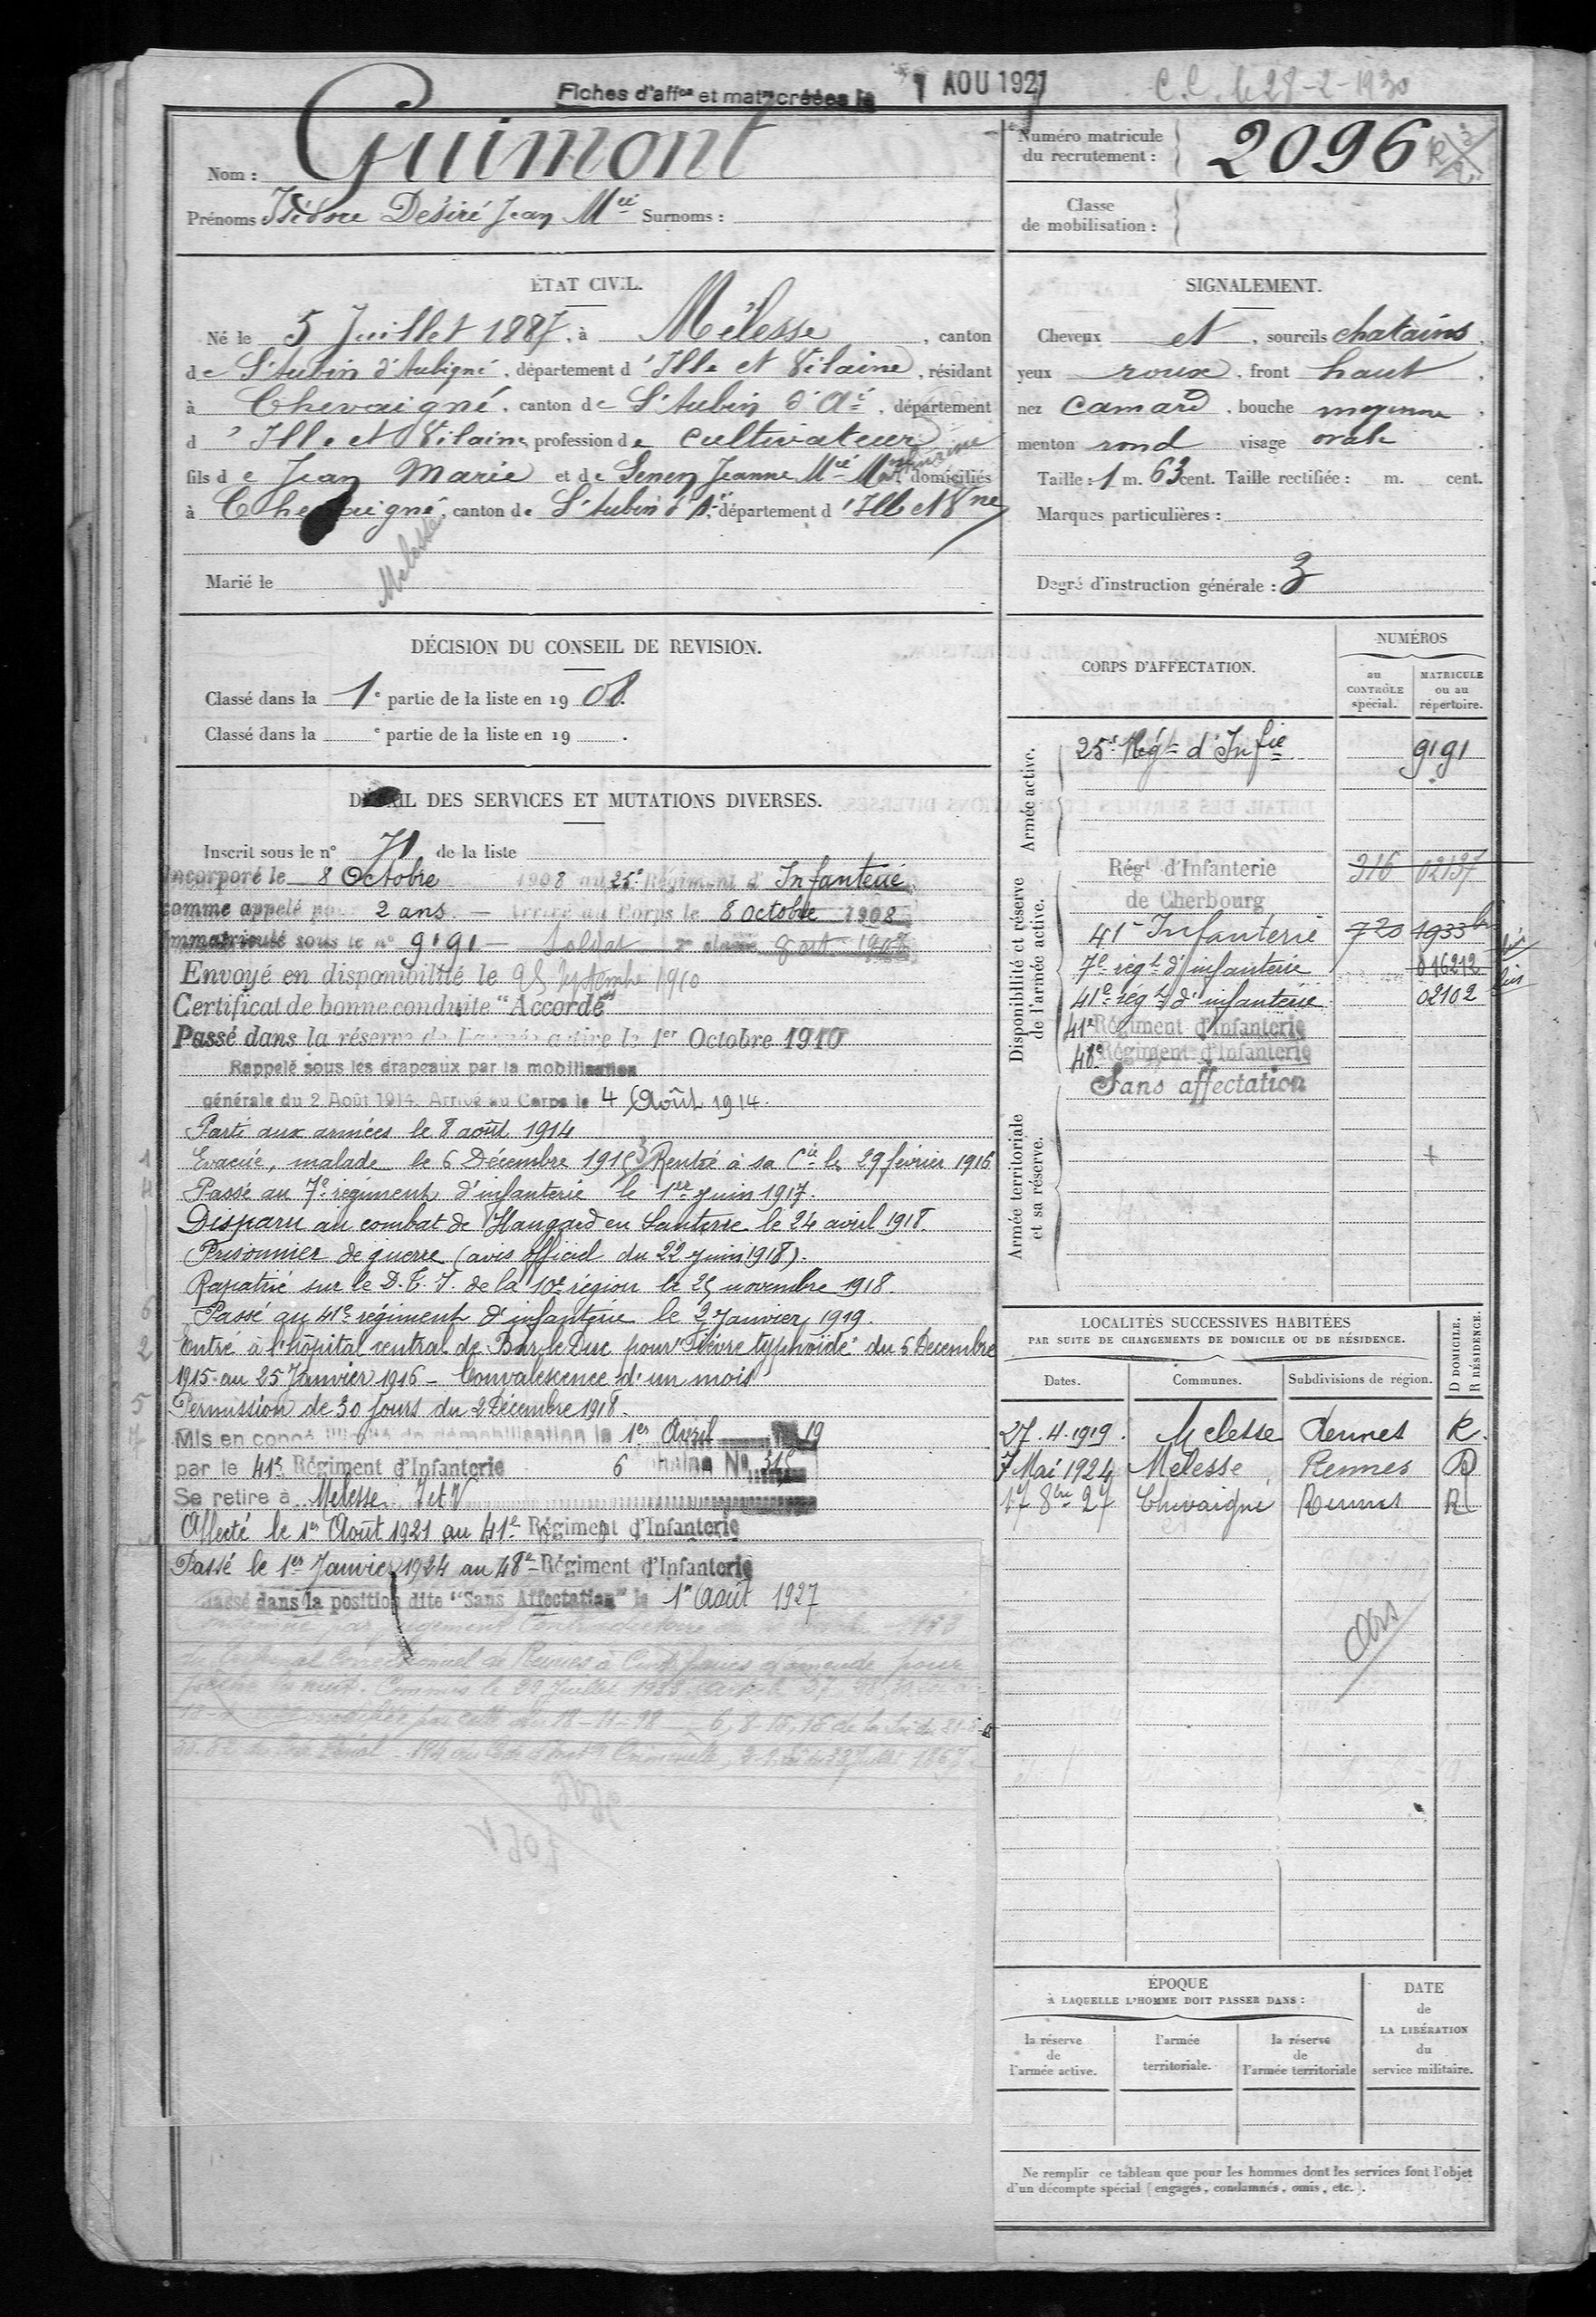 Fiches d'affon et matr créées le 1 AOU 1927
C.C. le 28-2-1930
Nom : Guimont
Prénoms Isidore Désiré Jean Mie Surnoms :
Numéro matricule
du recrutement : 2096
Classe
de mobilisation :
ÉTAT CIVIL.
Né le 5 Juillet 1887, à Mélesse, canton
de St Aubin d'Aubigné, département d'Ille et Vilaine, résidant
à Chevaigné, canton de St Aubin d'Aé, département
d'Ille et Vilaine, profession de cultivateur
fils de Jean Marie et de Jeanne Mie domiciliés
à Chevaigné, canton de St Aubin d'A, département d'Ille et Vne
Melesse
Marié le
SIGNALEMENT.
Cheveux et, sourcils chatains,
yeux roux, front haut,
nez camard, bouche moyenne,
menton rond visage ovale.
Taille : 1 m. 63 cent. Taille rectifiée : m. cent.
Marques particulières :
Degré d'instruction générale : 3
DÉCISION DU CONSEIL DE REVISION.
Classé dans la 1e partie de la liste en 1908.
Classé dans la e partie de la liste en 19 .
DÉTAIL DES SERVICES ET MUTATIONS DIVERSES.
Inscrit sous le n° 71 de la liste
Incorporé le 8 Octobre 1908 au 25e Régiment d'Infanterie
comme appelé po 2 ans — Arrivé au Corps le 8 octobre 1908
Immatriculé sous le n° 9191 — Soldat 2e classe
Envoyé en disponibilité le 25 septembre 1910
Certificat de bonne conduite "Accordé"
Passé dans la réserve de l'armée active le 1er Octobre 1910
Rappelé sous les drapeaux par la mobilisation
générale du 2 Août 1914. Arrivé au Corps le 4 Août 1914.
Parti aux armées le 8 août 1914
1 Evacué, malade le 6 Décembre 1915 3 Rentré à sa Cie le 29 février 1916
4 Passé au 7e régiment d'infanterie le 1er juin 1917.
Disparu au combat de Hangard en Santerre le 24 avril 1918.
Prisonnier de guerre (avis officiel du 22 juin 1918).
Rapatrié sur le D.T.I. de la 10e région le 25 novembre 1918.
6 Passé au 41e régiment d'infanterie le 2 Janvier 1919.
2 Entré à l'hôpital central de Bar le Duc pour "Fièvre typhoïde" du 6 Décembre
1915 au 25 Janvier 1916 - Convalescence d'un mois
5 Permission de 30 jours du 2 Décembre 1918.
7 Mis en congé illimité de démobilisation le 1er Avril 19
par le 41e Régiment d'Infanterie 6 No 315
Se retire à Melesse I et V
Affecté le 1er Août 1921 au 41e Régiment d'Infanterie
Passé le 1er Janvier 1924 au 48e Régiment d'Infanterie
Passé dans la position dite "Sans Affectation" le 1er Août 1927
Condamné par jugement Contradictoire
du Tribunal Correctionnel de Rennes à Cent francs d'amende pour
Commis le 22 Juillet 1933
CORPS D'AFFECTATION.
NUMÉROS
au
CONTRÔLE
spécial.
MATRICULE
ou au
répertoire.
Armée active.
25e Régt d'Infie 9191
Disponibilité et réserve
de l'armée active.
Régt d'Infanterie 316 02137
de Cherbourg
41e Infanterie 720 1933 bis
7e régt d'infanterie 016212
41e régt d'infanterie 02102 bis
41e Régiment d'Infanterie
48e Régiment d'Infanterie
Sans affectation
Armée territoriale
et sa réserve.
LOCALITÉS SUCCESSIVES HABITÉES
PAR SUITE DE CHANGEMENTS DE DOMICILE OU DE RÉSIDENCE.
D DOMICILE.
R RÉSIDENCE.
Dates. Communes. Subdivisions de région.
27.4.1919. Melesse Rennes R.
7 Mai 1924 Melesse Rennes D
17 8bre 27 Chevaigné Rennes R
ÉPOQUE
À LAQUELLE L'HOMME DOIT PASSER DANS :
la réserve
de
l'armée active.
l'armée
territoriale.
la réserve
de
l'armée territoriale
DATE
de
LA LIBÉRATION
du
service militaire.
Ne remplir ce tableau que pour les hommes dont les services font l'objet
d'un décompte spécial (engagés, condamnés, omis, etc.).